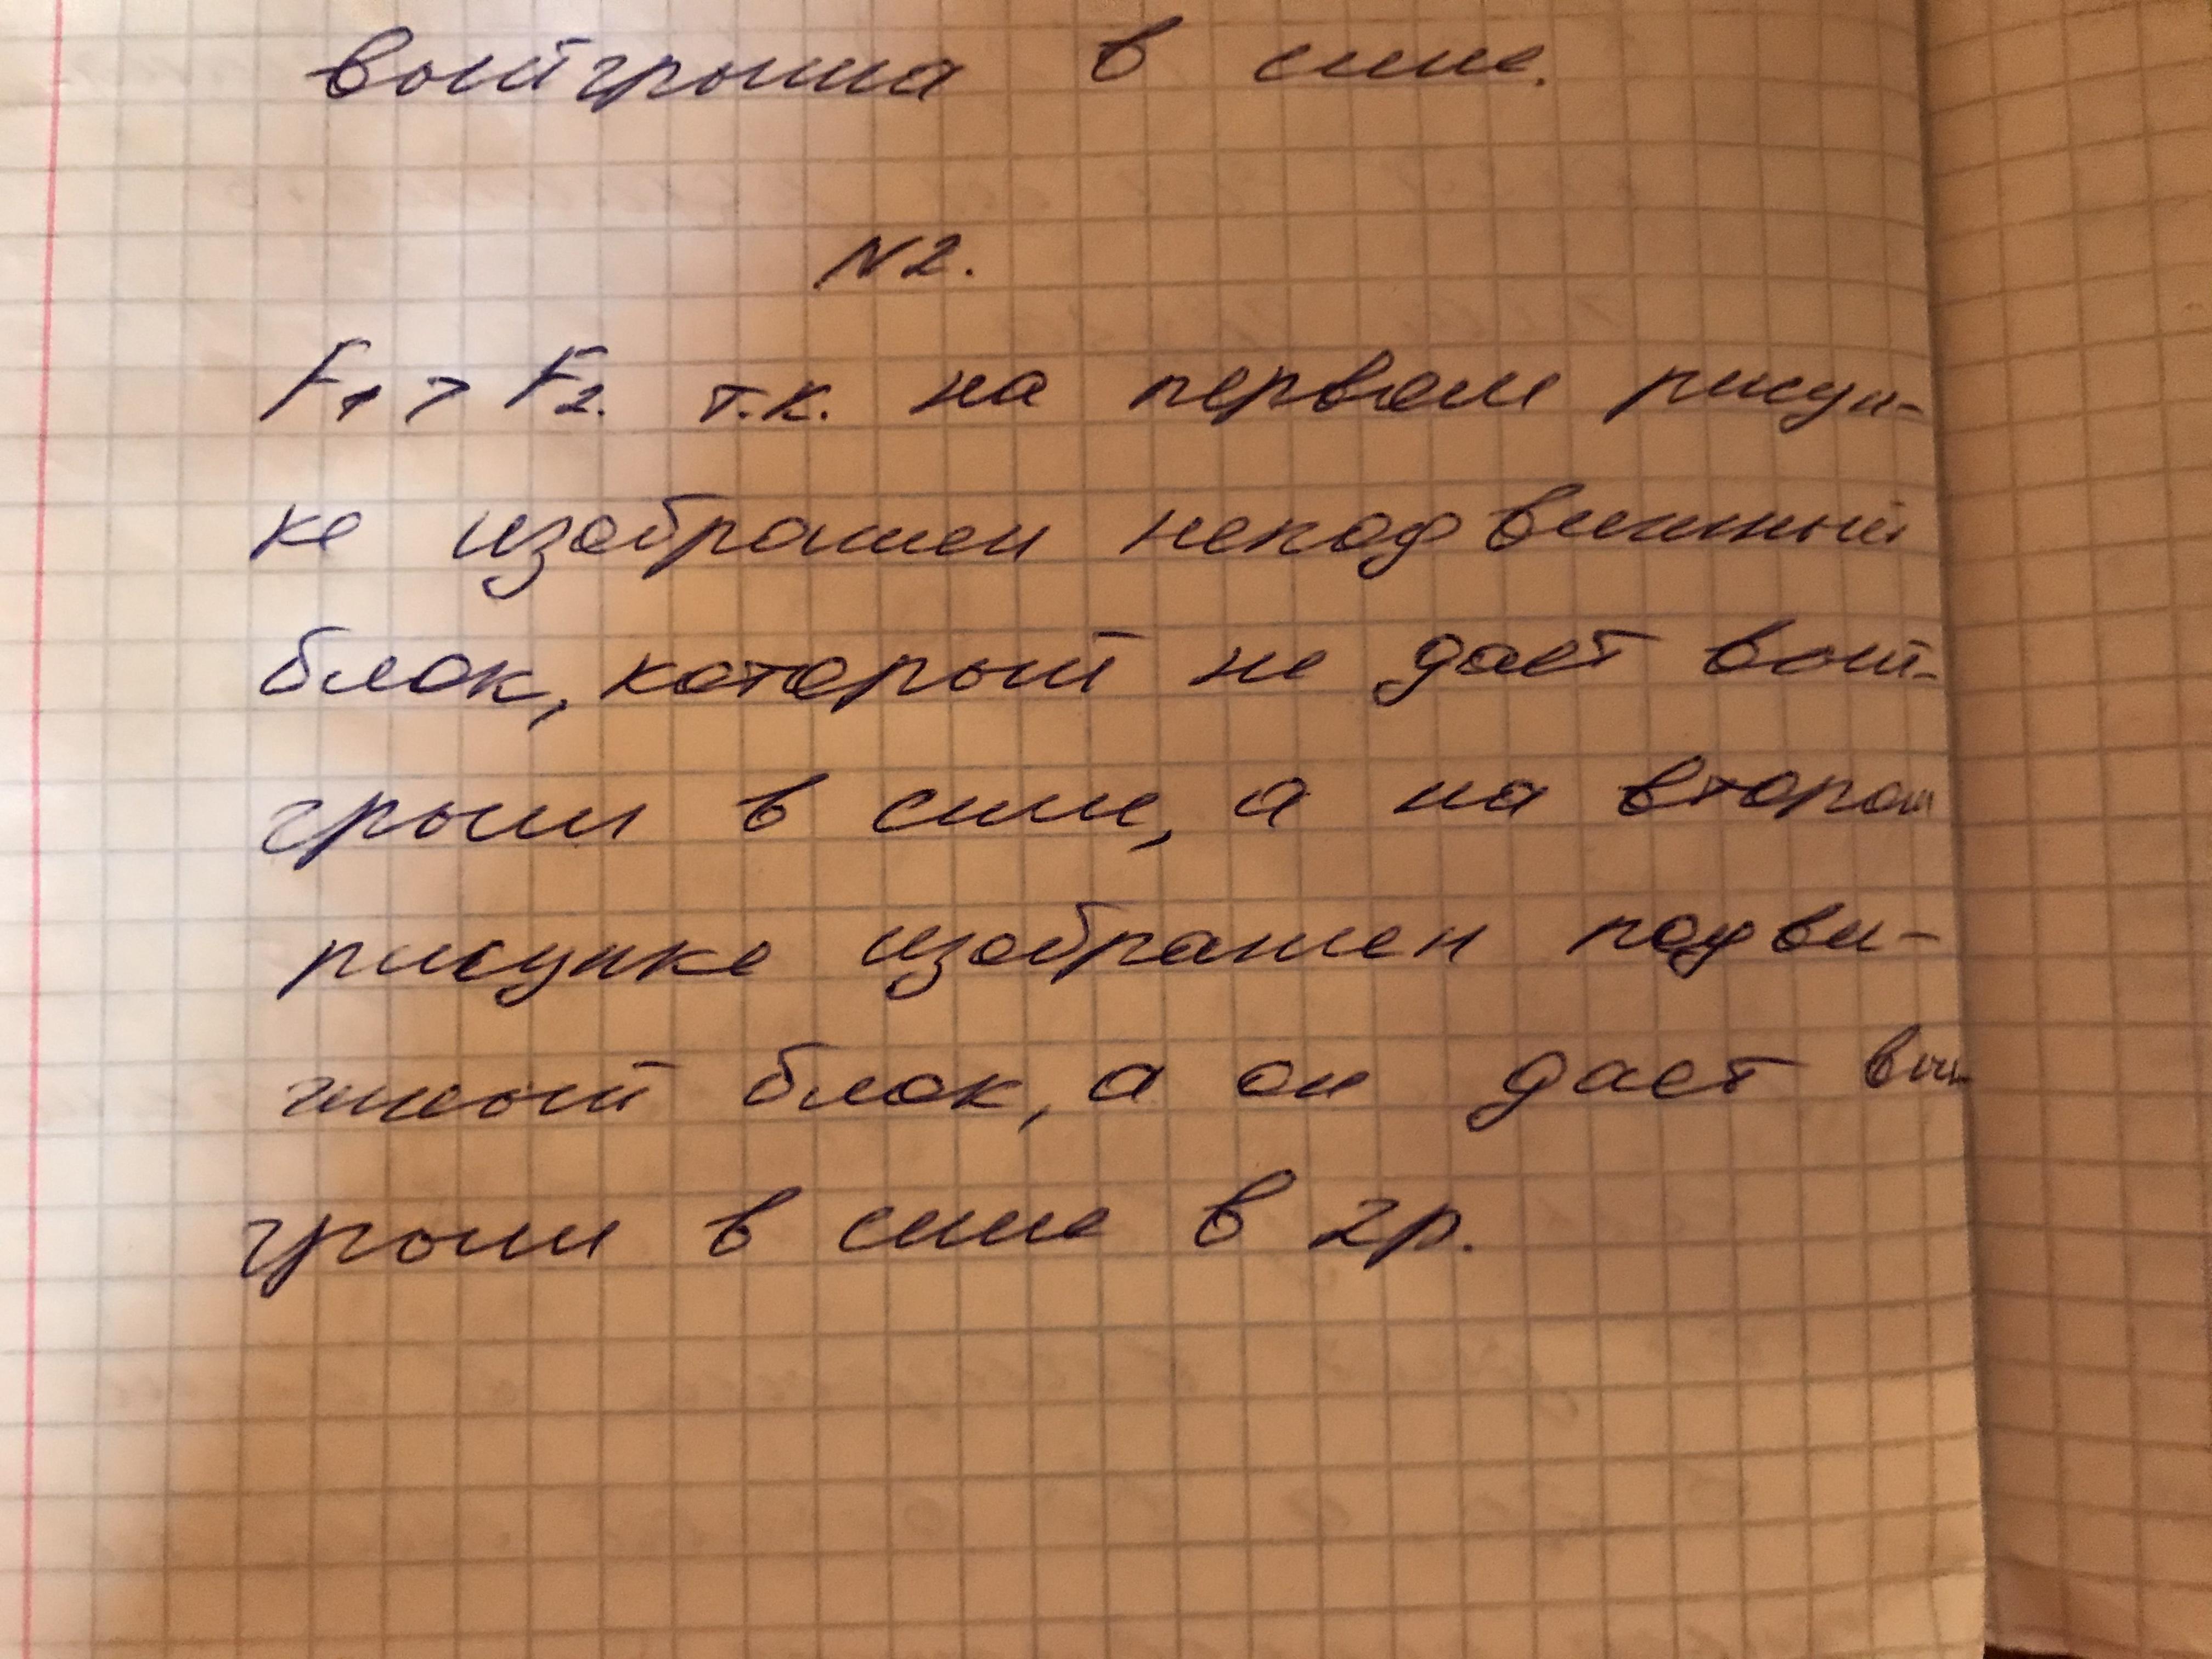 выйгрыша в силе.
N2.
F1 > F2. т.к. на первом рисун-
ке изображен неподвижный
блок, который не дает вый-
грыш в силе, а на втором
рисунке изображен подви-
жный блок, а он дает вый-
грыш в силе в 2р.